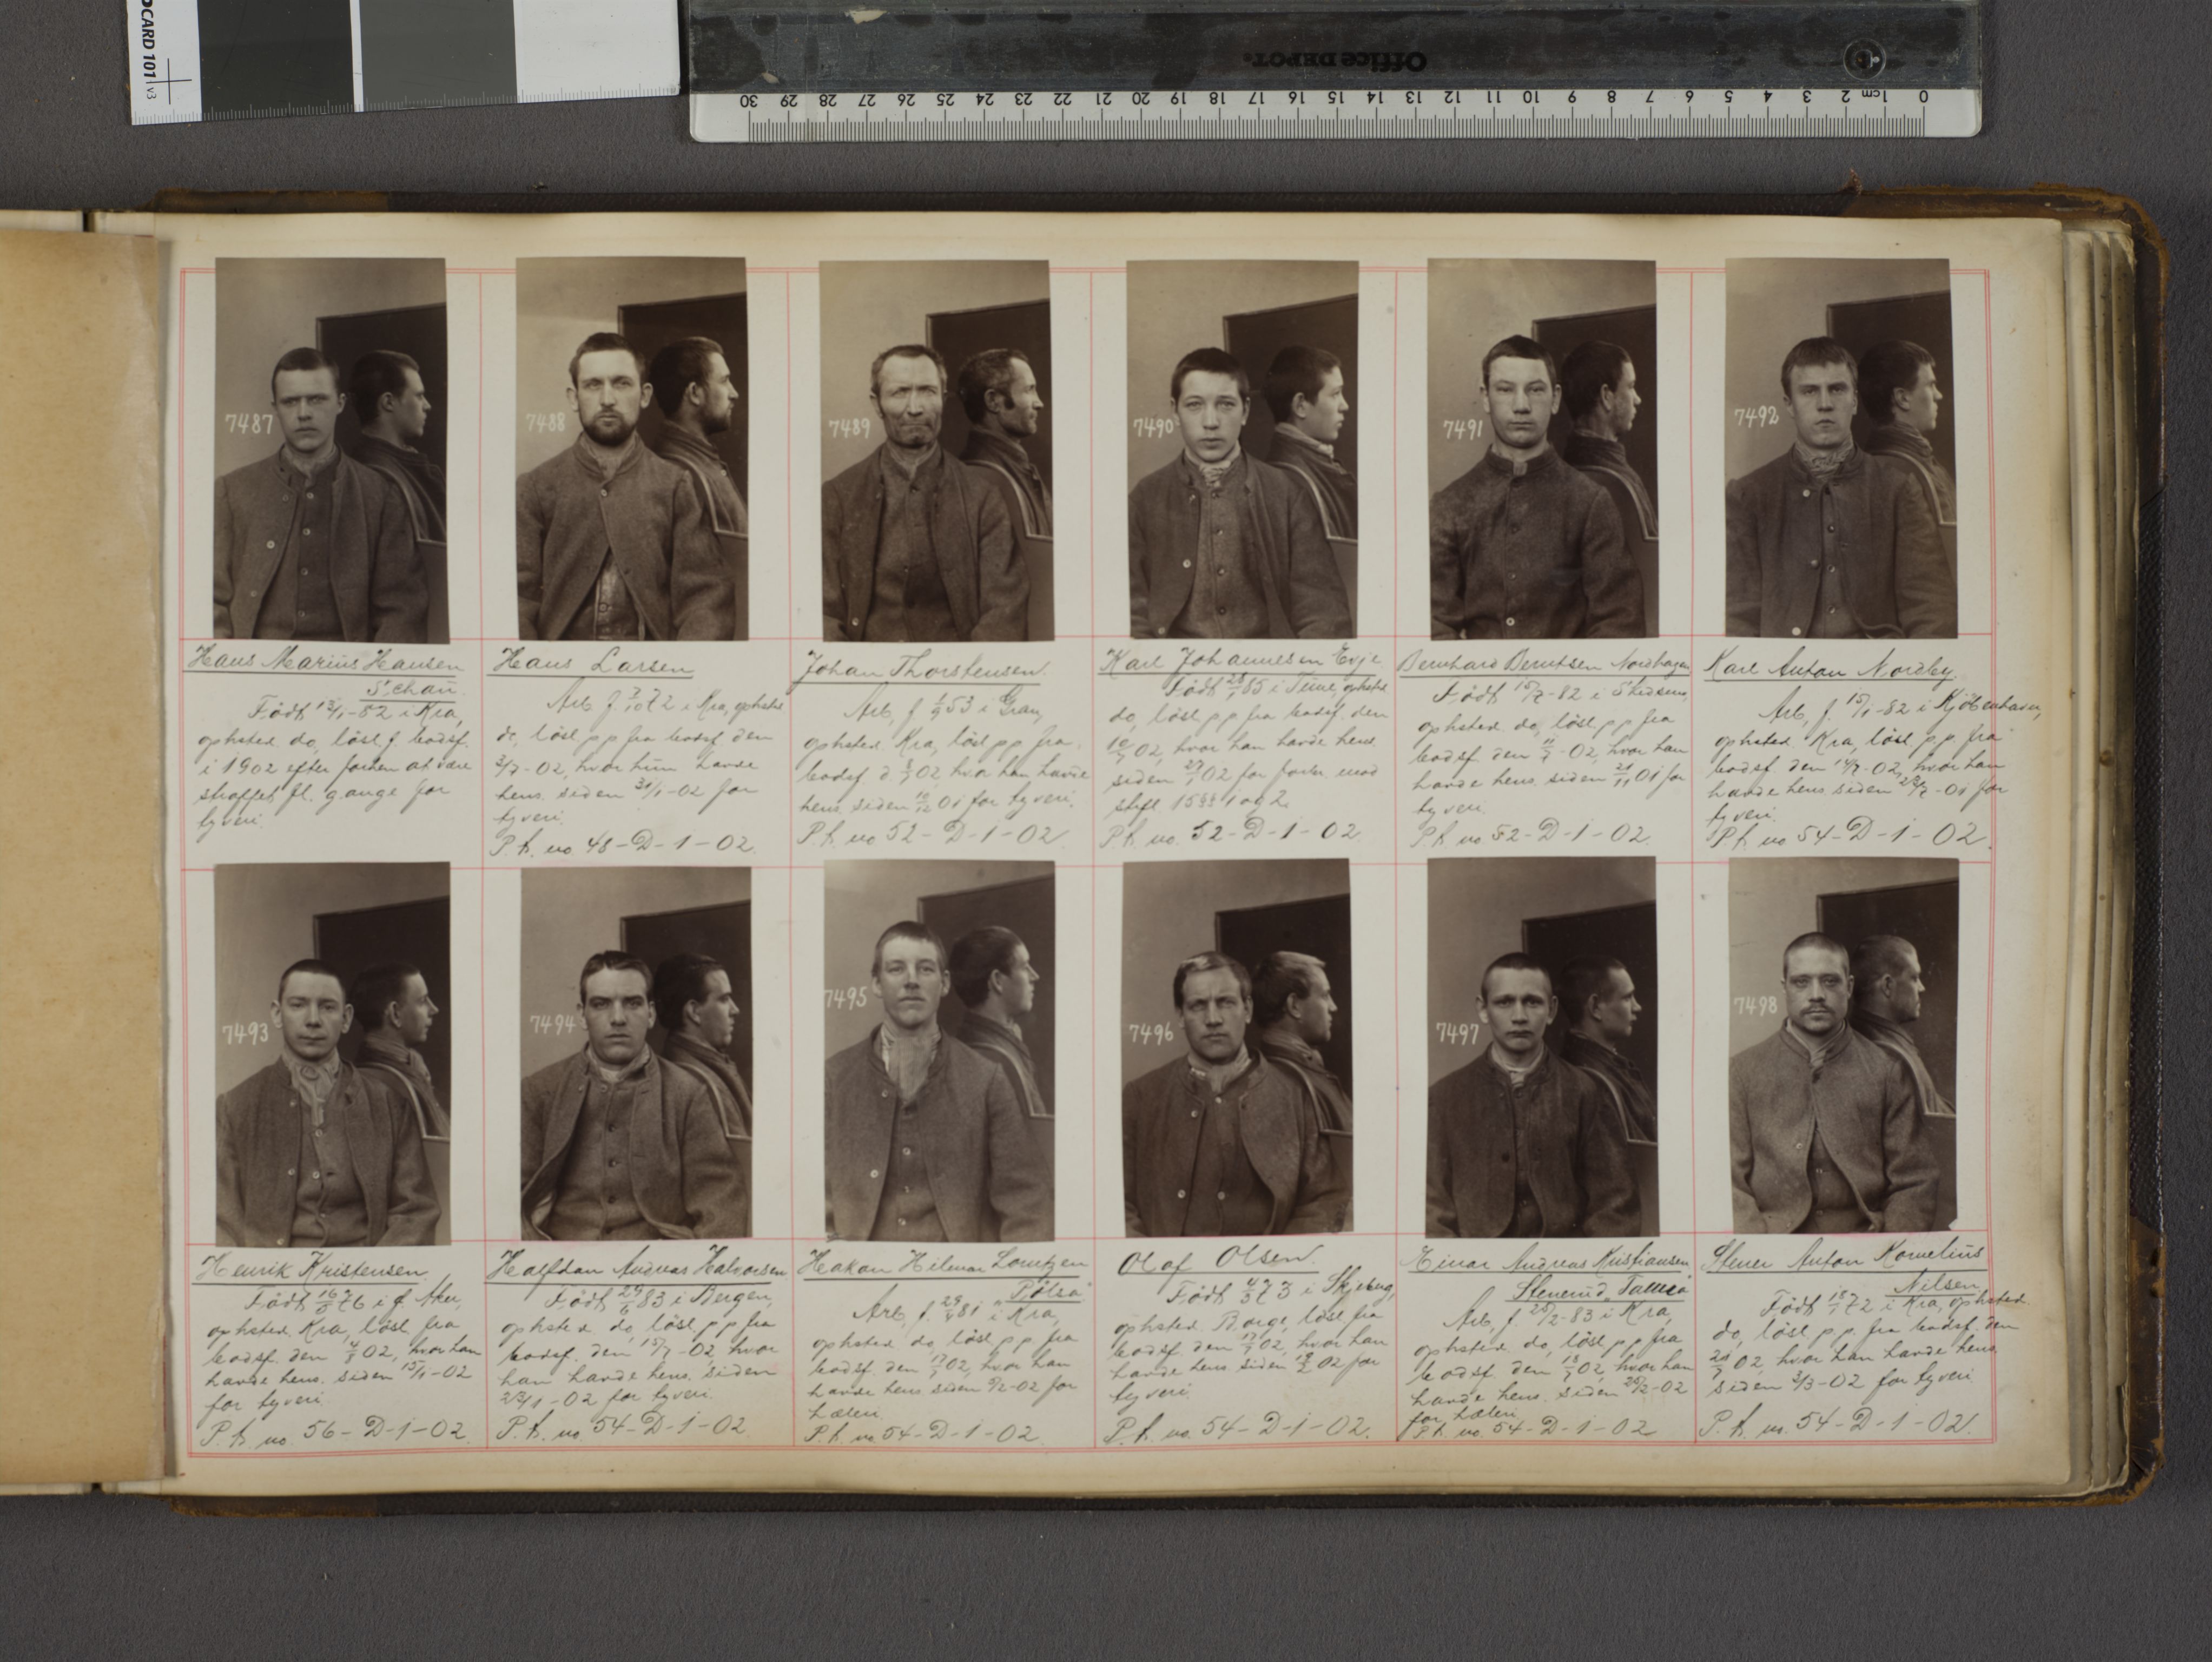 OCARD 101 v3
Office DEPOT.
0 1 cm 2 3 4 5 6 7 8 9 10 11 12 13 14 15 16 17 18 19 20 21 22 23 24 25 26 27 28 29 30
7487
Hans Marius Hansen
Schau.
Födt 13/1-82 i Kra,
ophsted do, løsl. f. bodsf.
i 1902 efter forhen at være
straffet fl. gange for
tyveri.
7488
Hans Larsen
Arb f 7/10 72 i Kra, ophsted
do, løsl pp fra bodsf den
3/7-02, hvor hun havde
hens. siden 31/1-02 for
tyveri.
P.k. no 48-D-1-02.
7489
Johan Thorstensen.
Arb, f 1/9 53 i Gran,
ophsted. Kra, løsl pp fra
bodsf d. 02, hvor han havde
hens. siden 01 for tyveri.
P.k. no 52-D-1-02.
7490
Karl Johannesen Evje
Födt 85 i Tune, ophsted
do, løsl pp fra bodsf. den
10/7 02, hvor han havde hens.
siden 02 for forbr. mod
stfl. 15 §§ 1 og 2.
P.k. no. 52-D-1-02.
7491
Bernhard Berntsen Nordhagen
Födt -82 i
ophsted do, løsl pp fra
bodsf. den 11/7-02, hvor han
havde hens. siden 21/11 01 for
tyveri.
P.k no 52-D-1-02.
7492
Karl Anton Nordby.
Arb, f. 15/1-82 i Kjöbenhavn,
ophsted. Kra, løsl p.p. fra
bodsf. den 14/7-02, hvor han
havde hens. siden -01 for
tyveri.
P.k no 54-D-1-02.
7493
Henrik Kristensen.
Födt 76 i Aker,
ophsted. Kra, løsl fra
bodsf. den 4/8 02, hvor han
havde hens. siden 15/1-02
for tyveri
P.k. no. 56-D-1-02.
7494
Halfdan Andreas Halvorsen
Födt 83 i Bergen,
ophsted do, løsl. pp fra
bodsf. den 15/7-02, hvor
han havde hens. siden
-02 for tyveri.
P.k. no 54-D-1-02
7495
Hakon Hilmar Lorentzen
"Pölsa"
Arb, f. 81 i Kra,
ophsted do, løsl pp fra
bodsf. den 17/7 02, hvor han
havde hens siden -02 for
hæleri.
P.k. no 54-D-1-02.
7496
Olaf Olsen.
Födt 73 i Skjeberg,
ophsted. Borge, løsl fra
bodsf. den 17/7 02, hvor han
havde hens. siden 02 for
tyveri.
P.k. no. 54-D-1-02.
7497
Einar Andreas Kristiansen
Stenerud
Arb, f. -83 i Kra,
ophsted do, løsl pp fra
bodsf. den 18/7 02, hvor han
havde hens. siden -02
for hæleri.
P.k. no. 54-D-1-02
7498
Stener Anton Kornelius
Nilsen
Födt 72 i Kra, ophsted
do, løsl p.p. fra bodsf. den
02, hvor han havde hens.
siden 3/3-02 for tyveri
P.k. no. 54-D-1-02.